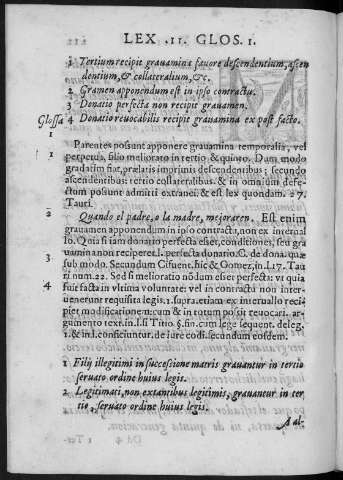 LEX .11. GLOS. 1.
1 Tertium recipit grauamina fauore descendentium, ascen
dentium, & collateralium, &c.
2 Gramen apponendum est in ipso contractu.
3 Donatio perfecta non recipit grauamen.
Glossa 4 Donatio reuocabilis recipit grauamina ex post facto.
1
Parentes possunt apponere grauamina temporalia, vel
perpetua, filio meliorato in tertio & quinto. Dum modo
gradatim fiat, prælatis imprimis descendentibus; secundo
ascendentibus: tertio collateralibus. & in omnium defe-
ctum possunt admitti extranei. & est lex quondam. 27.
Tauri.
2 Quando el padre, o la madre, mejoraren. Est enim
grauamen apponendum in ipso contractu, non ex interual
lo. Quia si iam donatio perfecta esset, conditiones, seu gra
uamina non reciperet. l. perfecta donatio. C. de dona. quæ
3 sub modo. Secundum Cifuent. sic & Gomez, in l. 17. Tau
ri num. 22. Sed si melioratio nõdum esset perfecta: vt quia
4 fuit facta in vltima voluntate: vel in contractu non inter-
uenerunt requisita legis. 1. supra. etiam ex interuallo reci-
piet modificationem: cum & in totum possit reuocari. ar-
gumento text. in. l. si Titio. §. fin. cum lege sequent. de leg.
1. & in l. conficiuntur. de iure codi. secundum eosdem.
1 Filij illegitimi in successione matris grauantur in tertio
seruato ordine huius legis.
2 Legitimati, non extantibus legitimis, grauantur in ter
tio, seruato ordine huius legis.
A al-